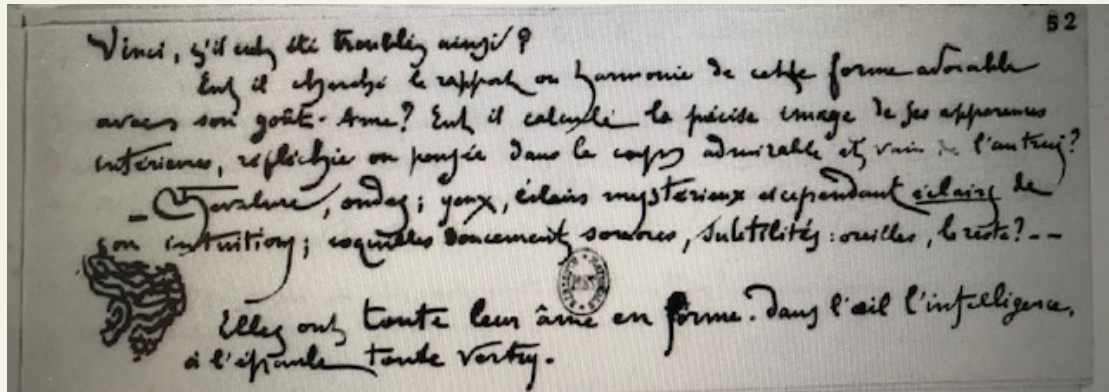 52
Vinci, s'il eut été troublé ainsi ?
Eut il cherché le rapport ou harmonie de cette forme adorable
avec son goût. Ame ? Eut il calculé la précise image de ses apparences
intérieures, réfléchie ou pensée dans le corps admirable et vain de l'autrui ?
_ Chevelure, ondes ; yeux, éclairs mystérieux et cependant éclairs de
son intuition ; coquilles doucement sonores, subtilités : oreilles, le reste ? - -
Elles ont toute leur âme en forme. Dans l'œil l'intelligence,
à l'épaule toute vertu.